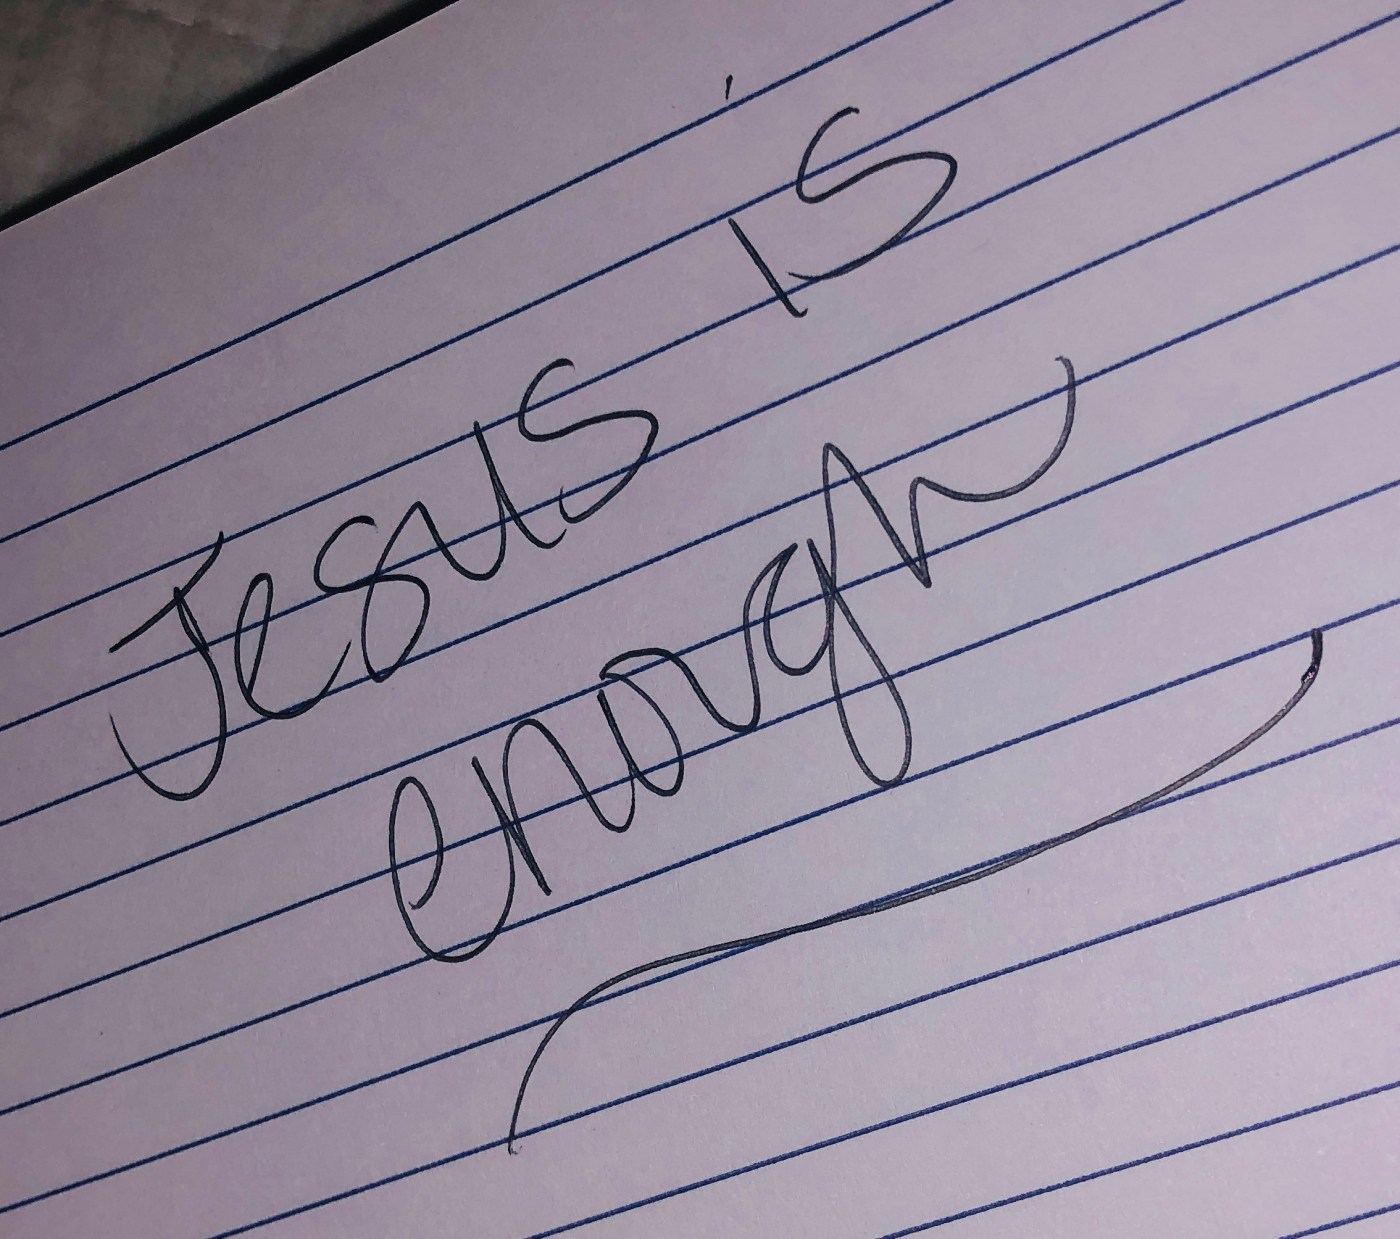 Jesus is
enough